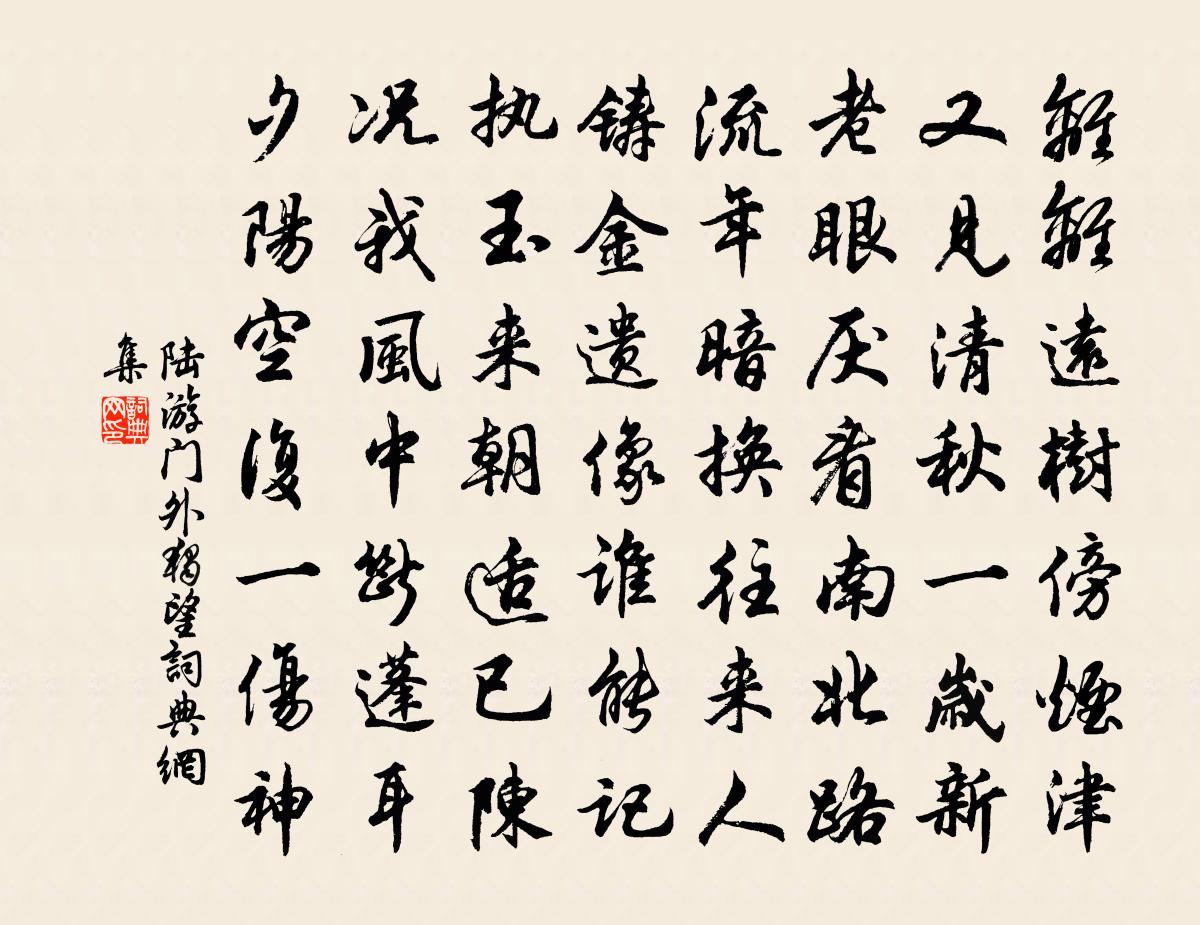 離離遠樹傍煙津
又見清秋一歲新
老眼厌看南北路
流年暗換往来人
铸金遗像谁能记
执玉来朝适已陳
况我風中斷蓬耳
夕陽空復一傷神
陆游门外獨望詞典網
集
詞典网印